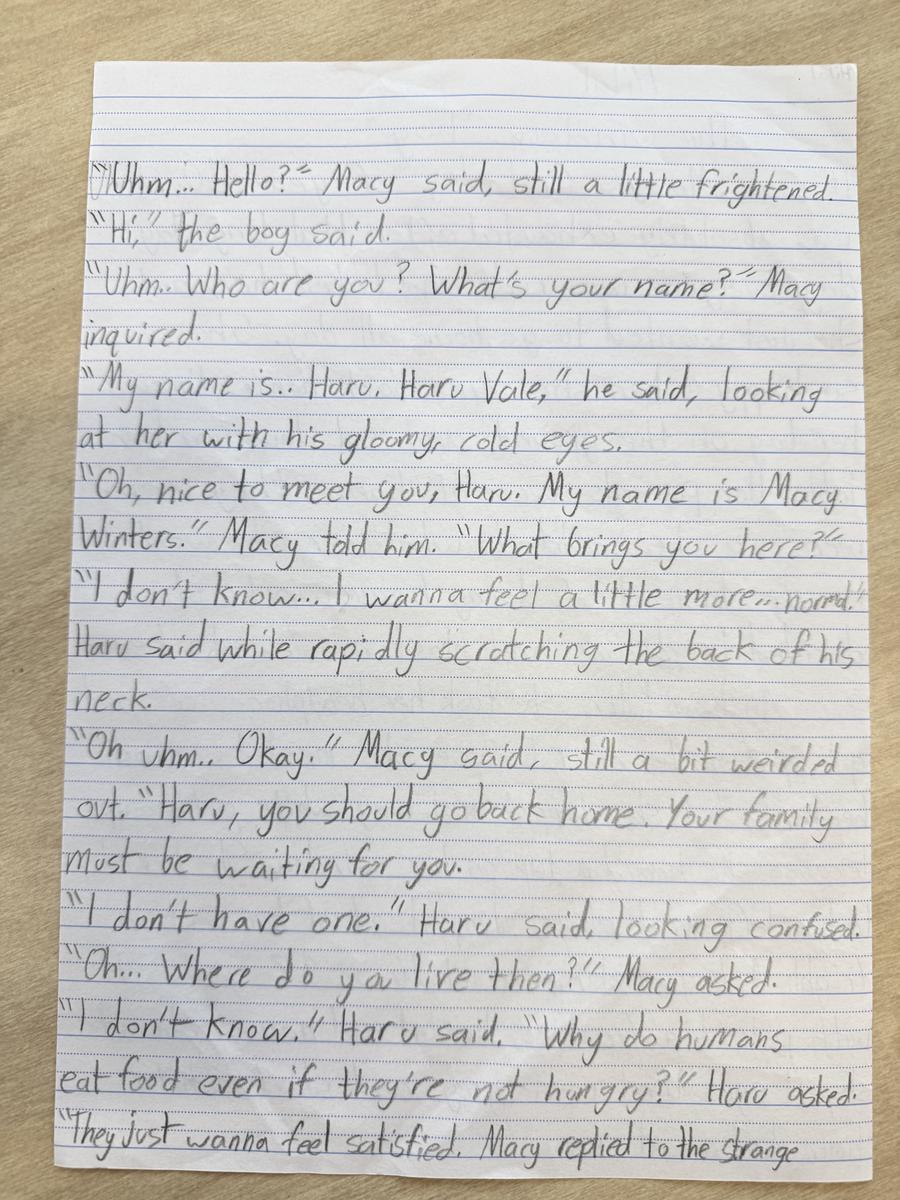 "Uhm... Hello?" Macy said, still a little frightened.
"Hi," the boy said.
"Uhm.. Who are you? What's your name?" Macy
inquired.
"My name is.. Haru. Haru Vale," he said, looking
at her with his gloomy, cold eyes.
"Oh, nice to meet you, Haru. My name is Macy
Winters." Macy told him. "What brings you here?"
"I don't know... I wanna feel a little more... normal."
Haru said while rapidly scratching the back of his
neck.
"Oh uhm.. Okay." Macy said, still a bit weirded
out. "Haru, you should go back home. Your family
must be waiting for you.
"I don't have one." Haru said, looking confused.
"Oh... Where do you live then?" Macy asked.
"I don't know." Haru said. "Why do humans
eat food even if they're not hungry?" Haru asked.
"They just wanna feel satisfied. Macy replied to the strange